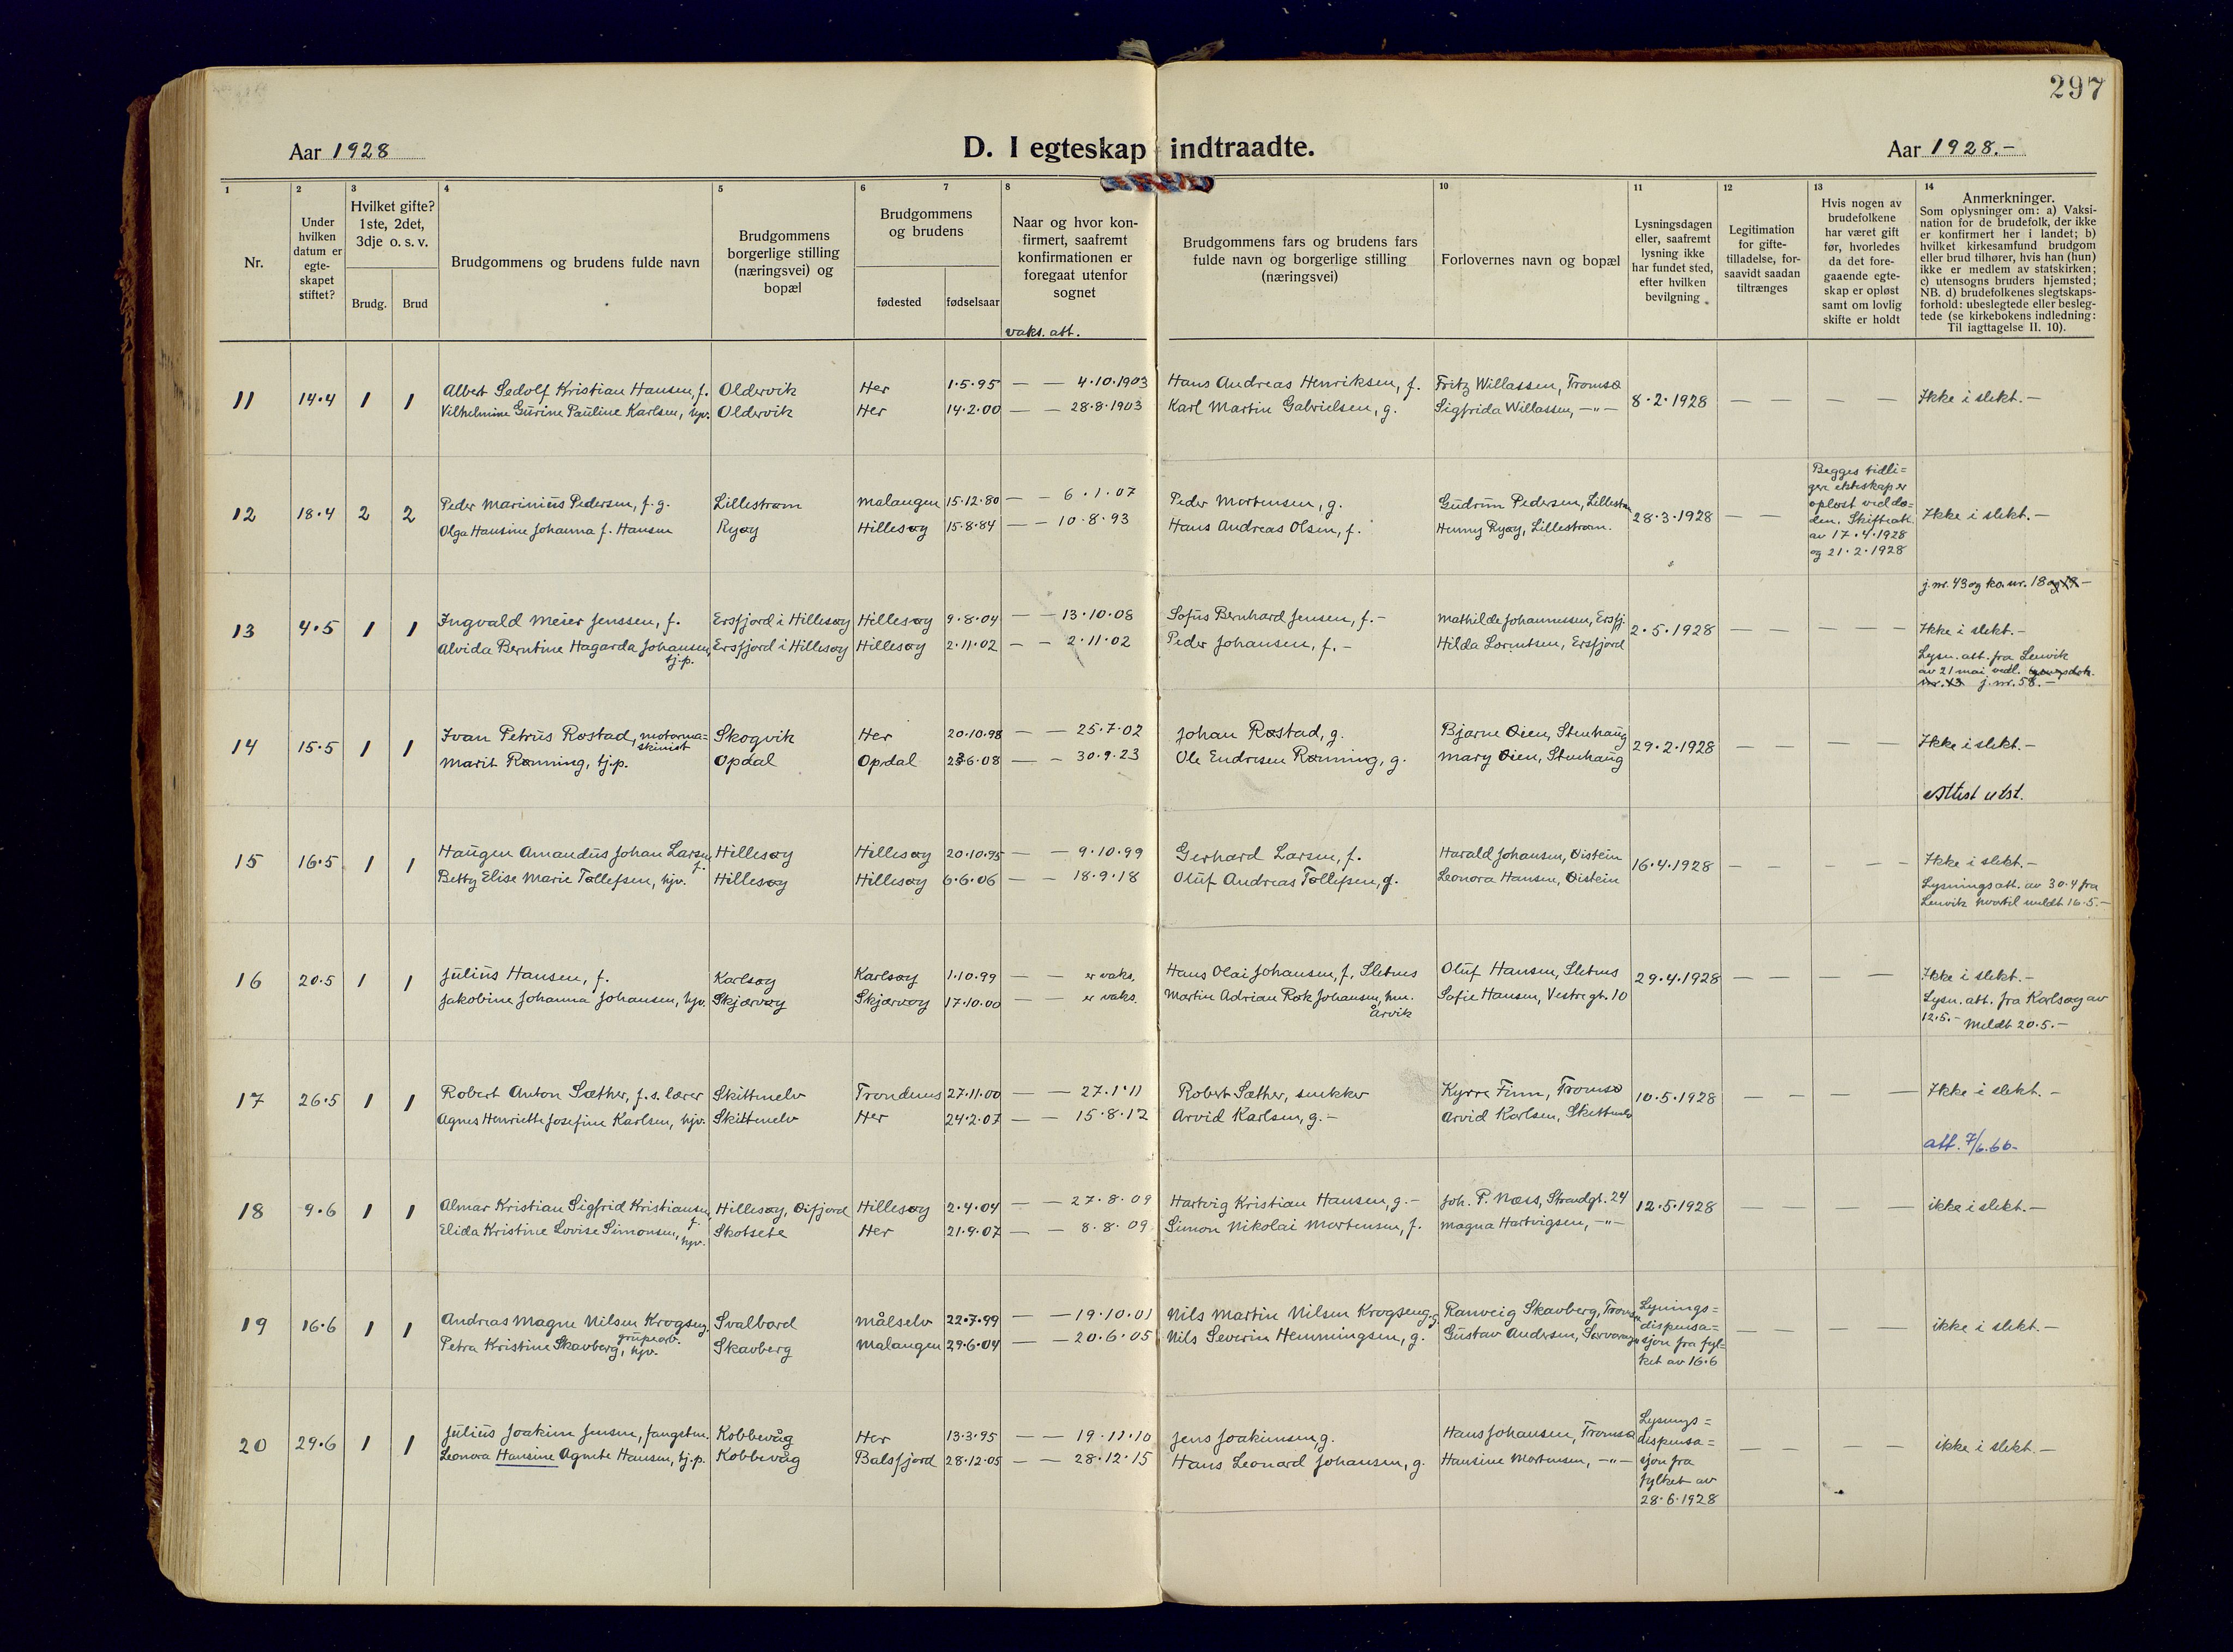 297
Aar 1928
D. I egteskap indtraadte.
Aar 1928.-
1 2 3 4 5 6 7 8 10 11 12 13 14
Nr.
Under hvilken datum er egte-skapet stiftet?
Hvilket gifte? 1ste, 2det, 3dje o. s. v.
Brudg. Brud
Brudgommens og brudens fulde navn
Brudgommens borgerlige stilling (næringsvei) og bopæl
Brudgommens og brudens
fødested fødselsaar
Naar og hvor kon-firmert, saafremt konfirmationen er foregaat utenfor sognet
vaks. att.
Brudgommens fars og brudens fars fulde navn og borgerlige stilling (næringsvei)
Forlovernes navn og bopæl
Lysningsdagen eller, saafremt lysning ikke har fundet sted, efter hvilken bevilgning
Legitimation for gifte-tilladelse, for-saavidt saadan tiltrænges
Hvis nogen av brudefolkene har været gift før, hvorledes da det fore-gaaende egte-skap er opløst samt om lovlig skifte er holdt
Anmerkninger.
Som oplysninger om: a) Vaksi-nation for de brudefolk, der ikke er konfirmert her i landet; b) hvilket kirkesamfund brudgom eller brud tilhører, hvis han (hun) ikke er medlem av statskirken; c) utensogns bruders hjemsted; NB. d) brudefolkenes slegtskaps-forhold: ubeslegtede eller besleg-tede (se kirkebokens indledning: Til iagttagelse II. 10).
11 14.4 1 1 Albert Sedolf Kristian Hansen, f. Oldervik Her 1.5.95 — — 4.10.1903 Hans Andreas Henriksen, f. Fritz Willassen, Tromsø 8.2.1928 — — — — Ikke i slekt.-
Vilhelmine Gurine Pauline Karlsen, hjv. Oldervik Her 14.2.00 — — 28.8.1903 Karl Martin Gabrielsen, g. Sigfrida Willassen, —"—
12 18.4 2 2 Peder Marinius Pedersen, f. g. Lillestrøm Malangen 15.12.80 — — 6.1.07 Peder Mortensen, g. Gudrun Pedersen, Lillestrøm 28.3.1928 — — Begges tidli=gere ekteskap er opløst ved dø=den. Skifteatt. av 17.4.1928 og 21.2.1928 Ikke i slekt.-
Olga Hansine Johanna f. Hansen Ryøy Hillesøy 15.8.84 — — 10.8.93 Hans Andreas Olsen, f. Henny Ryøy, Lillestrøm.
j.nr. 43 og ko.nr. 18
13 4.5 1 1 Ingvald Meier Jenssen, f. Ersfjord i Hillesøy Hillesøy 9.8.04 — — 13.10.08 Sofus Bernhard Jensen, f.- Mathilde Johannessen, Ersfj. 2.5.1928 — — — — Ikke i slekt.-
Alvida Berntine Hagarda Johansen, tj.p. Ersfjord i Hillesøy Hillesøy 2.11.02 — — 2.11.02 Peder Johansen, f.- Hilda Lorentsen, Ersfjord
Lysn. att. fra Lenvik
av 21 mai vedl.
j.nr. 58.-
14 15.5 1 1 Ivan Petrus Røstad, motorma=skinist Skogvik Her 20.10.98 — — 25.7.02 Johan Røstad, g. Bjarne Øien, Stenhaug 29.2.1928 — — — — Ikke i slekt.-
Marit Rønning, tj.p. Opdal Opdal 23.6.08 — — 30.9.23 Ole Endresen Rønning, g. Mary Øien, Stenhaug
Attest utst.
15 16.5 1 1 Haugen Amandus Johan Larsen f. Hillesøy Hillesøy 20.10.95 — — 9.10.99 Gerhard Larsen, f. Harald Johansen, Øistein 16.4.1928 — — — — Ikke i slekt.-
Betty Elise Marie Tollefsen, hjv. Hillesøy Hillesøy 6.6.06 — — 18.9.18 Oluf Andreas Tollefsen, g. Leonora Hansen, Øistein
Lysningsatt. av 30.4 fra
Lenvik hvortil meldt 16.5.-
16 20.5 1 1 Julius Hansen, f. Karlsøy Karlsøy 1.10.99 — — er vaks. Hans Olai Johansen, f, Sletnes Oluf Hansen, Sletnes 29.4.1928 — — — — Ikke i slekt.-
Jakobine Johanna Johansen, hjv. Skjærvøy Skjærvøy 17.10.00 er vaks. Martin Adrian Røk Johansen, hm. Årvik Sofie Hansen, Vestregt. 10
Lysn. att. fra Karlsøy av
12.5.- Meldt 20.5.-
17 26.5 1 1 Robert Anton Sæther, f.s. lærer Skittenelv Trondenes 27.11.00 — — 27.1.11 Robert Sæther, snekker Kyrre Finn, Tromsø 10.5.1928 — — — — Ikke i slekt.-
Agnes Henriette Josefine Karlsen, hjv. Skittenelv Her 24.2.07 — — 15.8.12 Arvid Karlsen, g.- Arvid Karlsen, Skittenelv
att. 7/6.60-
18 9.6 1 1 Almar Kristian Sigfrid Kristiansen, f. Hillesøy, Øifjord Hillesøy 2.4.04 — — 27.8.09 Hartvig Kristian Hansen, g.- Joh. P. Næss, Strandgt. 24 12.5.1928 — — — — ikke i slekt.-
Elida Kristine Lovise Simonsen, hjv. Skotsete Her 21.9.07 — — 8.8.09 Simon Nikolai Mortensen, f. Magna Hartvigsen, —"—
19 16.6 1 1 Andreas Magne Nilsen Krogseng, grubearb. Svalbard Målselv 22.7.99 — — 19.10.01 Nils Martin Nilsen Krogseng, g. Ranveig Skavberg, Tromsø Lysnings=dispensa=sjon fra fyl=ket av 16.6 — — — — ikke i slekt.-
Petra Kristine Skavberg, hjv. Skavberg Malangen 29.6.04 — — 20.6.05 Nils Severin Henningsen, g. Gustav Andersen, Sørvaranger
20 29.6 1 1 Julius Joakim Jensen, fangstm. Kobbevåg Her 13.3.95 — — 19.11.10 Jens Joakimsen, g. Hans Johansen, Tromsø Lysnings=dispensa=sjon fra fylket av 28.6.1928 — — — — ikke i slekt.-
Leonora Hansine Agnete Hansen, tj.p. Kobbevåg Balsfjord 28.12.05 — — 28.12.15 Hans Leonard Johansen, g. Hansine Mortensen, —"—